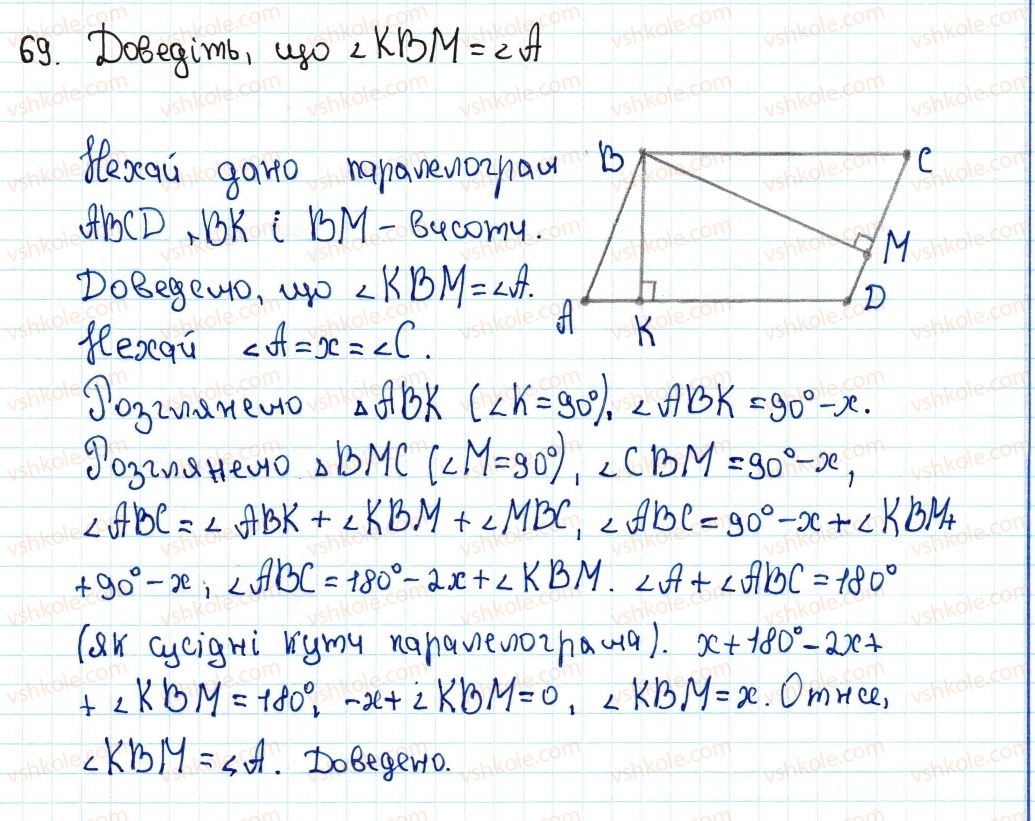 69. Доведіть, що ∠KBM = ∠A
Нехай дано паралелограм
ABCD, BK і BM – висоти.
Доведемо, що ∠KBM = ∠A.
Нехай ∠A = x = ∠C.
Розглянемо △ABK (∠K = 90°), ∠ABK = 90° – x.
Розглянемо △BMC (∠M = 90°), ∠CBM = 90° – x,
∠ABC = ∠ABK + ∠KBM + ∠MBC, ∠ABC = 90° – x + ∠KBM +
+ 90° – x, ∠ABC = 180° – 2x + ∠KBM. ∠A + ∠ABC = 180°
(як сусідні кути паралелограма). x + 180° – 2x +
+ ∠KBM = 180°, –x + ∠KBM = 0, ∠KBM = x. Отже,
∠KBM = ∠A. Доведено.
B
C
M
D
A
K
vshkole.com